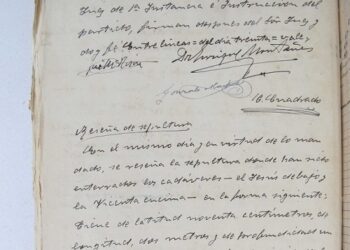 Juez de 1ª Instancia e Instruccion del
partido, firman despues del Sor Juez y
doy fé. Entre lineas = del dia treinta = vale =
Dr Enrique Montañes
Gonzalo
E. Cuadrado
Reseña de sepultura
Con el mismo dia y en virtud de lo man
dado, se reseña la sepultura donde han sido
enterrados los cadáveres — el Jesús debajo y
la Vicenta encima — en la forma siguiente;
tiene de latitud noventa centímetros, de
longitud, dos metros y de profundidad un